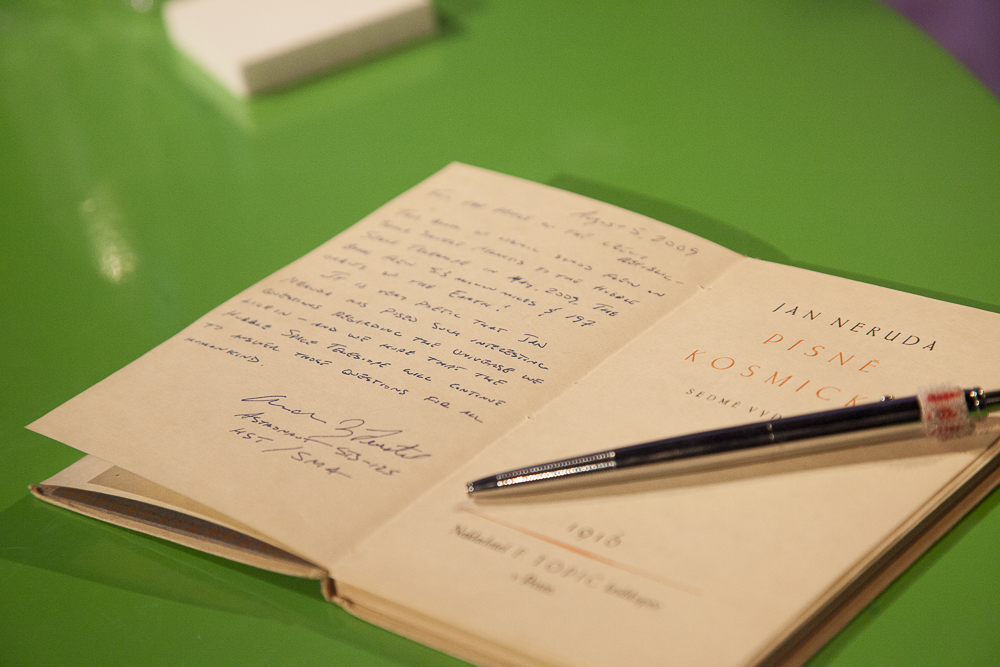 August 5, 2009
For the people of the Czech
Republic –
This book of verse was flown on
Space Shuttle Atlantis to the Hubble
Space Telescope in May, 2009. The
book flew 5.3 million miles & 197
orbits of the Earth!
It is very poetic that Jan
Neruda has posed such interesting
questions regarding the universe we
live in – and we hope that the
Hubble Space Telescope will continue
to answer those questions for all
humankind.
Astronaut, STS-125
HST / SM4
JAN NERUDA
PÍSNĚ
KOSMICK
SEDMÉ VYD
1916
Nakladatel F. TOPIČ knihkupec
v Praze